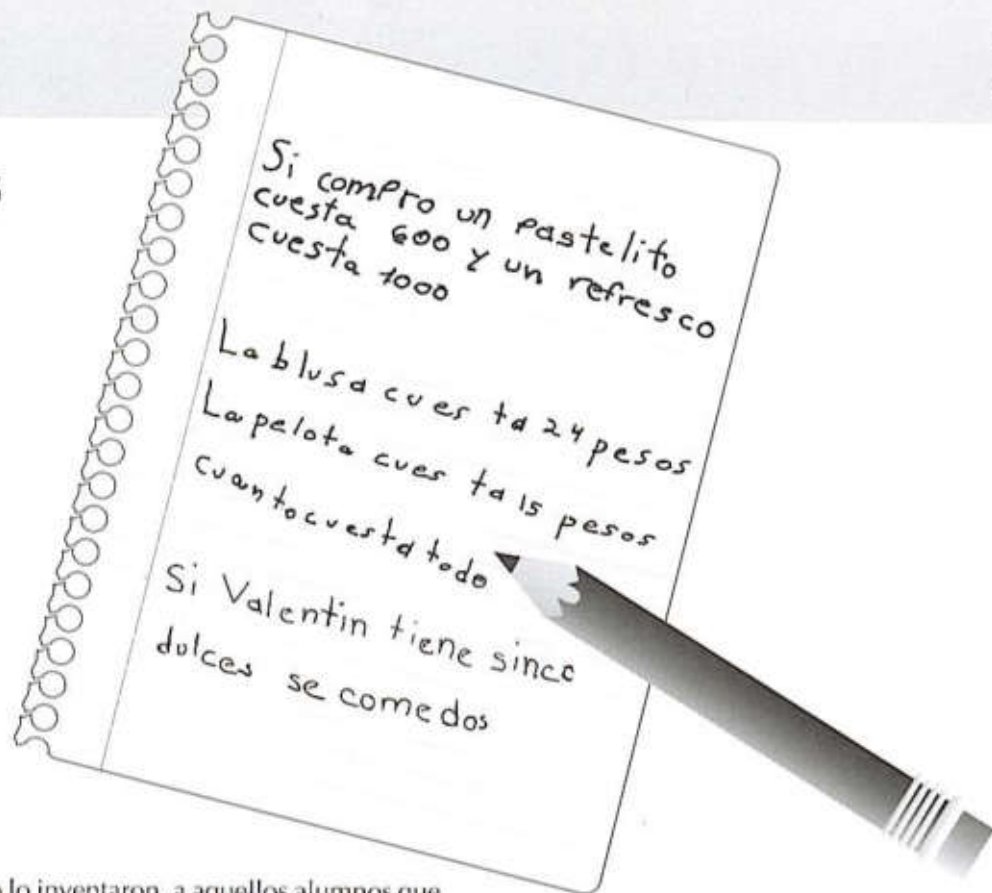 Si compro un pastelito
cuesta 600 y un refresco
cuesta 1000
La blusa cuesta 24 pesos
La pelota cuesta 15 pesos
cuanto cuesta todo
Si Valentin tiene sinco
dulces se come dos
lo inventaron, a aquellos alumnos que